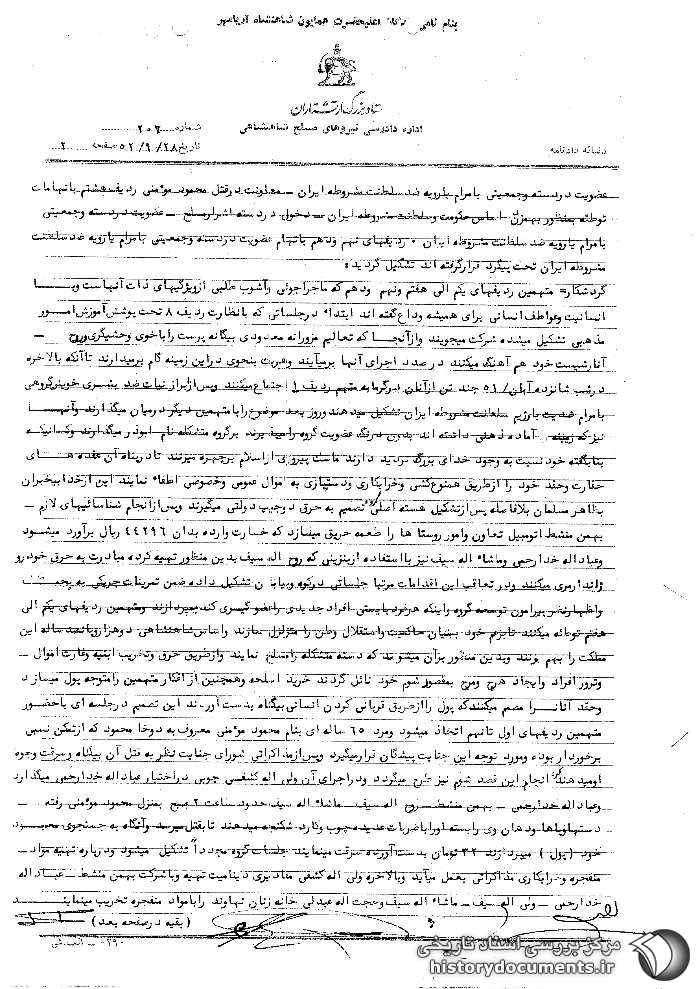 بنام نامی اعلیحضرت همایون شاهنشاه آریامهر
ستاد بزرگ ارتشتاران
اداره دادرسی نیروهای مسلح شاهنشاهی
شماره ۲۰۶
دنباله دادنامه
تاریخ ۵۲/۹/۲۸ صفحه ۲
عضویت در دسته و جمعیتی با مرام یا رویه ضد سلطنت مشروطه ایران – معاونت در قتل محمود مؤمنی ردیف هشتم باتهامات
توطئه بمنظور بهمزدن اساس حکومت و سلطنت مشروطه ایران – دخول در دسته اشرار مسلح – عضویت در دسته و جمعیتی
با مرام یا رویه ضد سلطنت مشروطه ایران ۰ ردیفهای نهم و دهم باتهام عضویت در دسته و جمعیتی با مرام یا رویه ضد سلطنت
مشروطه ایران تحت پیگرد قرار گرفته اند تشکیل گردید:
گردشکار= متهمین ردیفهای یکم الی هفتم و نهم و دهم که ماجراجوئی و آشوب طلبی از ویژگیهای ذات آنهاست و با
انسانیت و عواطف انسانی برای همیشه وداع گفته اند ابتدا در جلساتی که با نظارت ردیف ۸ تحت پوشش آموزش امور
مذهبی تشکیل میشده شرکت میجویند و از آنجا که تعالیم مزورانه معدودی بیگانه پرست را با خوی وحشیگری و روح
آنارشیست خود هم آهنگ میکنند در صدد اجرای آنها برمیآیند و هریک بنحوی در این زمینه گام برمیدارند تا آنکه بالاخره
در شب شانزده آبان/۵۱ چند تن از آنان در گرمابه متهم ردیف ۱ اجتماع میکنند و پس از ابراز نیات ضد بشری خویش گروهی
با مرام ضدیت با رژیم سلطنت مشروطه ایران تشکیل میدهند و روز بعد موضوع را با متهمین دیگر در میان میگذارند و آنها
نیز که زمینه آماده ذهنی داشته اند بدون درنگ عضویت گروه را میپذیرند بر گروه متشکله نام ابوذر میگذارند و کسانیکه
بنا بگفته خود نسبت به وجود خدای بزرگ تردید دارند ماسک پیروی از اسلام بر چهره میزنند تا در پناه آن عقده های
حقارت و حقد خود را از طریق همنوع کشی و خرابکاری و دستیازی به اموال عموم و خصوصی اطفاء نمایند این از خدا بیخبران
بظاهر مسلمان بلافاصله پس از تشکیل هسته اصلی تصمیم به حرق دو جیپ دولتی میگیرند و پس از انجام شناسائیهای لازم –
بهمن منشط اتومبیل تعاون و امور روستا ها را طعمه حریق میسازد که خسارت وارده بدان ۴۴۲۹۶ ریال برآورد میشود
و عباداله خدارحمی و ماشاء اله سیف نیز با استفاده از بنزینی که روح اله سیف بدین منظور تهیه کرده مبادرت به حرق خودرو
ژاندارمری میکنند و در تعاقب این اقدامات مرتبا جلساتی در کوه و بیابان تشکیل داده ضمن تمرینات چریکی به بحث
و اظهار نظر پیرامون توسعه گروه و اینکه هر فرد بایستی افراد جدیدی را عضو گیری کند میپردازند و متهمین ردیفهای یکم الی
هفتم توطئه میکنند تا بزعم خود بنیان حاکمیت و استقلال وطن را متزلزل سازند و اساس شاهنشاهی دو هزار و پانصد ساله این
مملکت را بهم بزنند و بدین منظور بر آن میشوند که دسته متشکله را مسلح نمایند و از طریق حرق و تخریب ابنیه و غارت اموال –
و ترور افراد و ایجاد هرج و مرج بمقصود شوم خود نائل گردند خرید اسلحه و همچنین از افکار متهمین را متوجه پول میسازد
و حقد آنان را مصمم میکند که پول را از طریق قربانی کردن انسانی بیگناه بدست آورند این تصمیم در جلسه ای با حضور
متهمین ردیفهای اول تا نهم اتخاذ میشود و مرد ۶۵ ساله ای بنام محمود مؤمنی معروف به دوخا محمود که از تمکن نسبی
برخوردار بوده و مورد توجه این جنایت پیشگان قرار میگیرد و پس از مذاکراتی شورای جنایت نظر به قتل آن بیگناه و سرقت وجوه
او میدهند انجام این قصد شوم نیز طرح میگردد و در اجرای آن ولی اله کشفی چوبی در اختیار عباداله خدارحمی میگذارد
و عباداله خدارحمی – بهمن منشط – روح اله سیف – ماشاء اله سیف حدود ساعت ۲ صبح بمنزل محمود مؤمنی رفته –
دستها و پاها و دهان وی را بسته او را با ضربات عدیده چوب و کارد شکنجه میدهند تا بقتل میرسد و آنگاه به جستجوی معبود
خود (پول) میپردازند ۳۲ تومان بدست آورده سرقت مینمایند جلسات گروه مجدداً تشکیل میشود و درباره تهیه مواد –
منفجره و خرابکاری مذاکراتی بعمل میآید و بالاخره ولی اله کشفی مقادیری دینامیت تهیه و با شرکت بهمن منشط – عباداله
خدارحمی – ولی اله سیف – ماشاء اله سیف و حجت اله عبدلی خانه زنان نهاوند را با مواد منفجره تخریب مینمایند
(بقیه در صفحه بعد)
مرکز بررسی اسناد تاریخی
historydocuments.ir